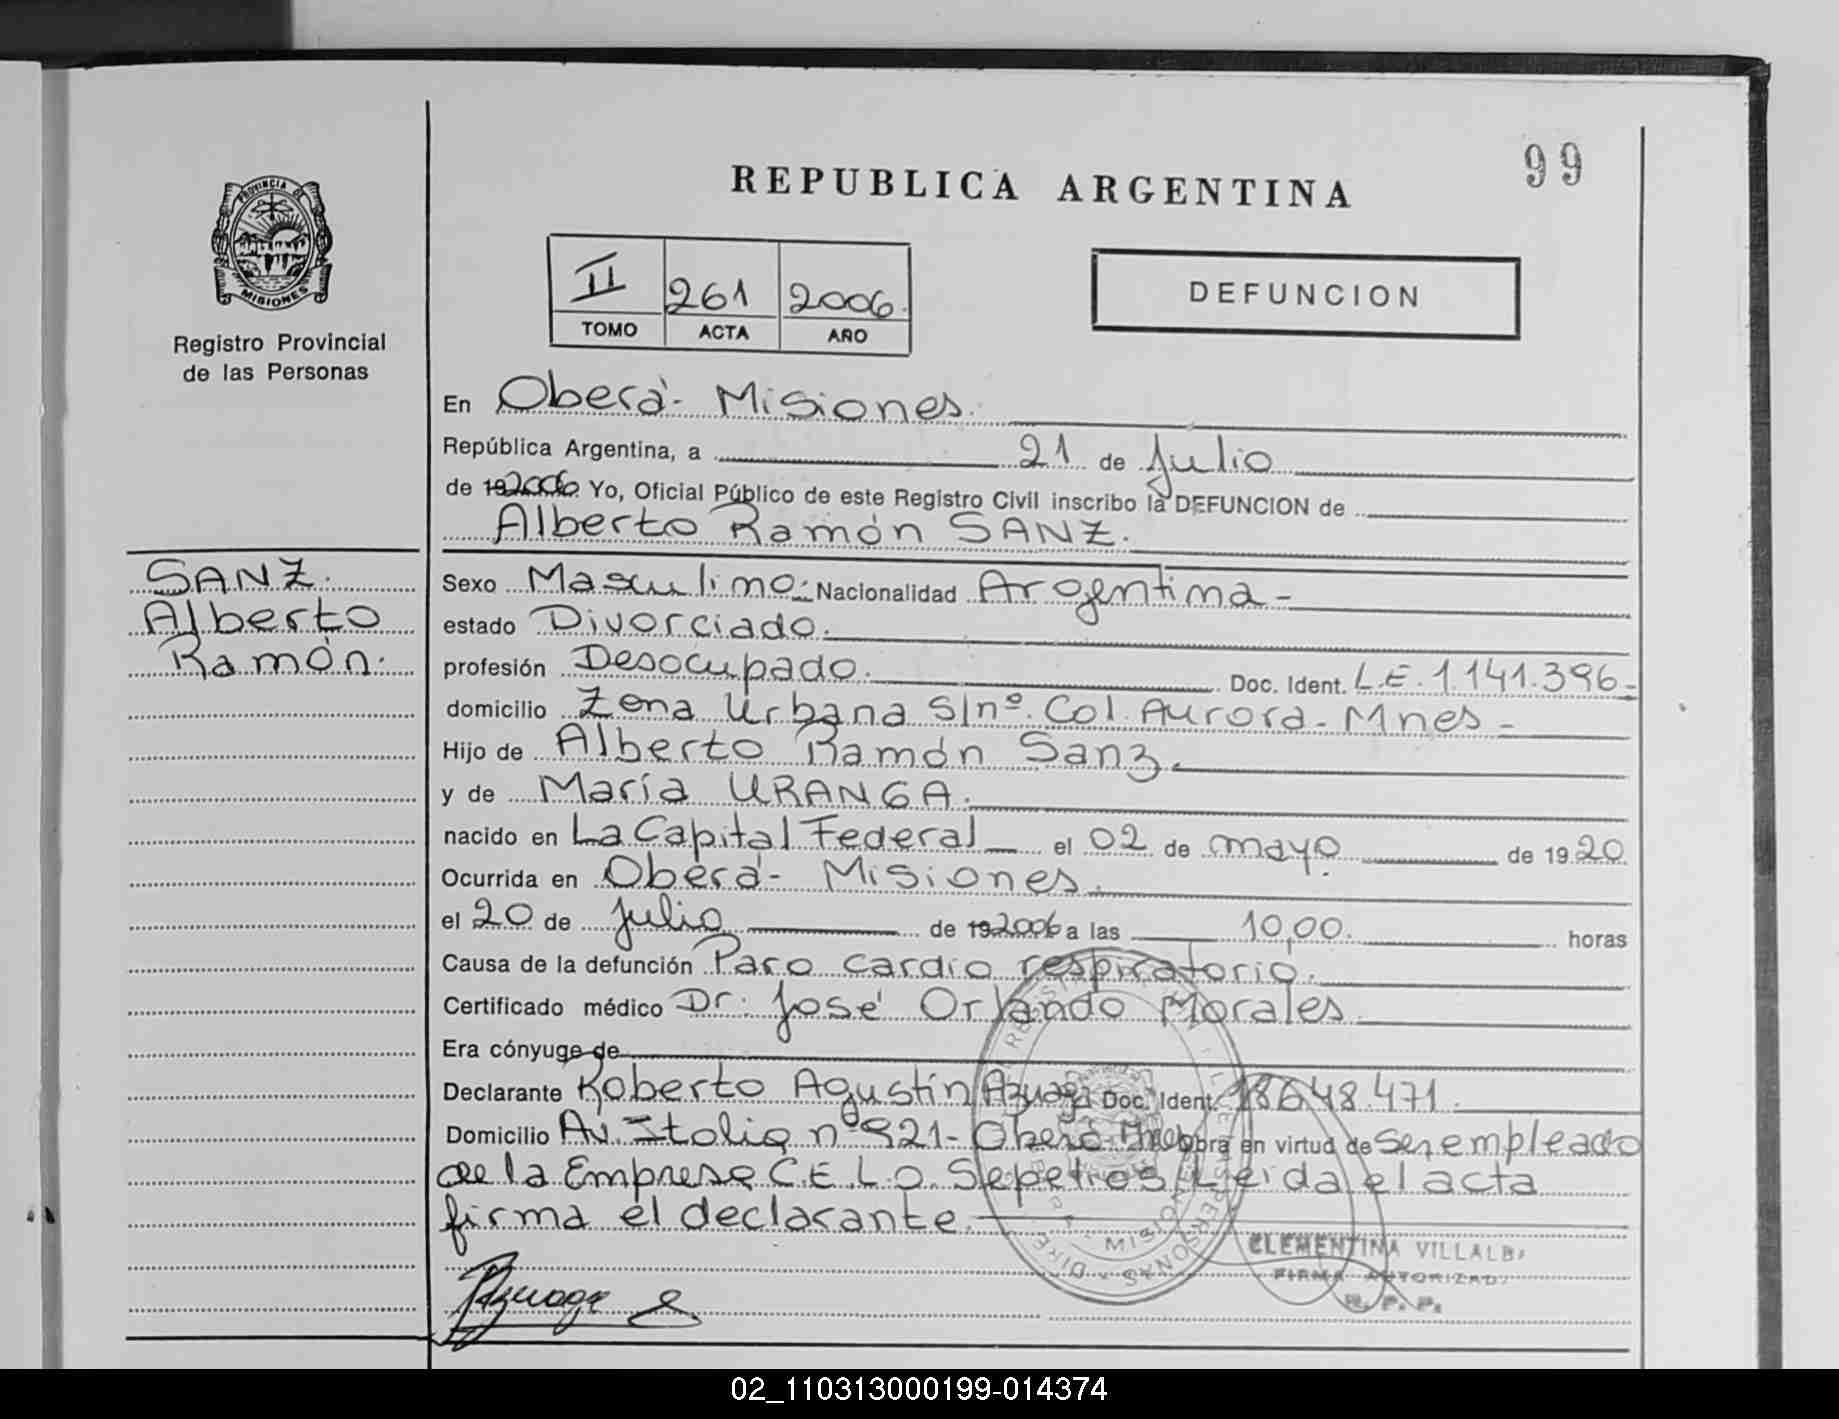 99
REPUBLICA ARGENTINA
PROVINCIA DE
MISIONES
Registro Provincial
de las Personas
II 261 2006.
TOMO ACTA AÑO
DEFUNCION
En Oberá - Misiones.
República Argentina, a 21 de Julio
de 192006 Yo, Oficial Público de este Registro Civil inscribo la DEFUNCION de
Alberto Ramón SANZ.
SANZ.
Alberto
Ramón.
Sexo Masculino. Nacionalidad Argentina -
estado Divorciado.
profesión Desocupado. Doc. Ident. L.E. 1.141.396-
domicilio Zona Urbana S/nº. Col. Aurora - Mnes -
Hijo de Alberto Ramón Sanz.
y de María URANGA.
nacido en La Capital Federal el 02 de mayo. de 1920
Ocurrida en Oberá - Misiones.
el 20 de Julio de 192006 a las 10,00. horas
Causa de la defunción Paro cardio respiratorio.
Certificado médico Dr. José Orlando Morales
Era cónyuge de
Declarante Roberto Agustín Azuaga Doc. Ident. 18648.471.
Domicilio Av. Italia nº 921 - Oberá obra en virtud de ser empleado
de la Empresa C.E.L.O. Sepelios Leida el acta
firma el declarante.
CLEMENTINA VILLALB
FIRMA AUTORIZAD
R. P. P.
Azuaga
02_110313000199-014374